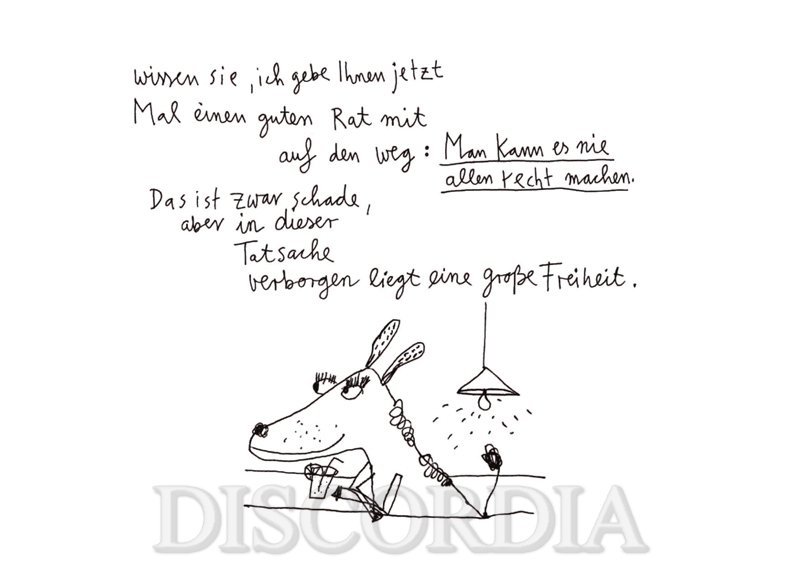 wissen sie, ich gebe Ihnen jetzt
Mal einen guten Rat mit
auf den weg: Man kann es nie
allen recht machen.
Das ist zwar schade,
aber in dieser
Tatsache
verborgen liegt eine große Freiheit.
DISCORDIA